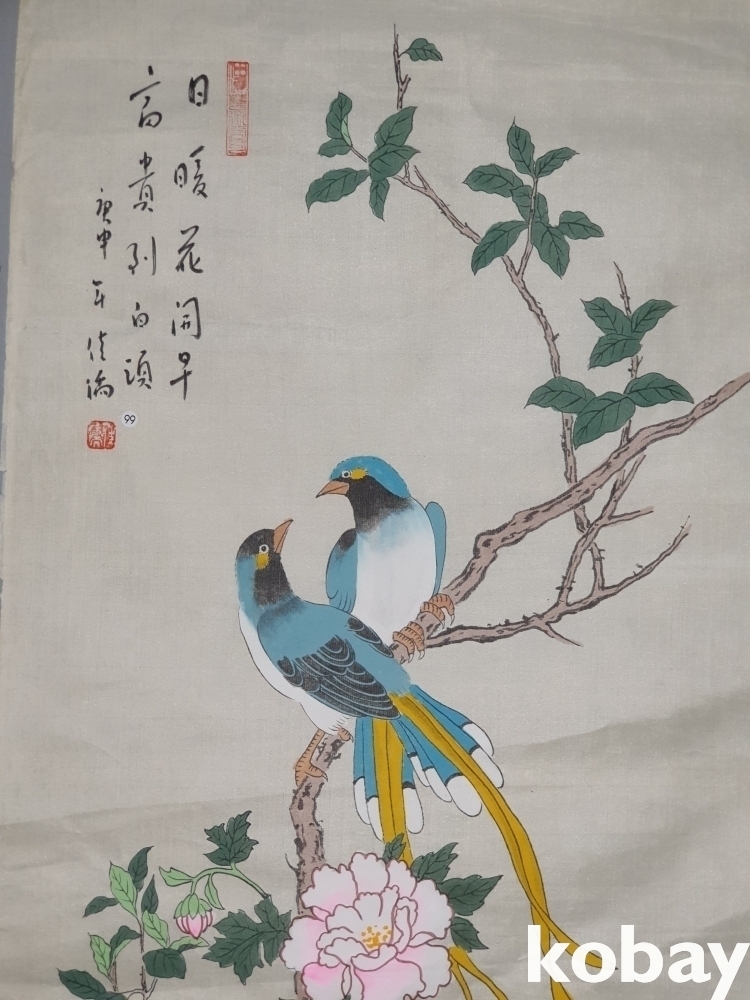 日暖花開早
富貴到白頭
庚申年
99
kobay